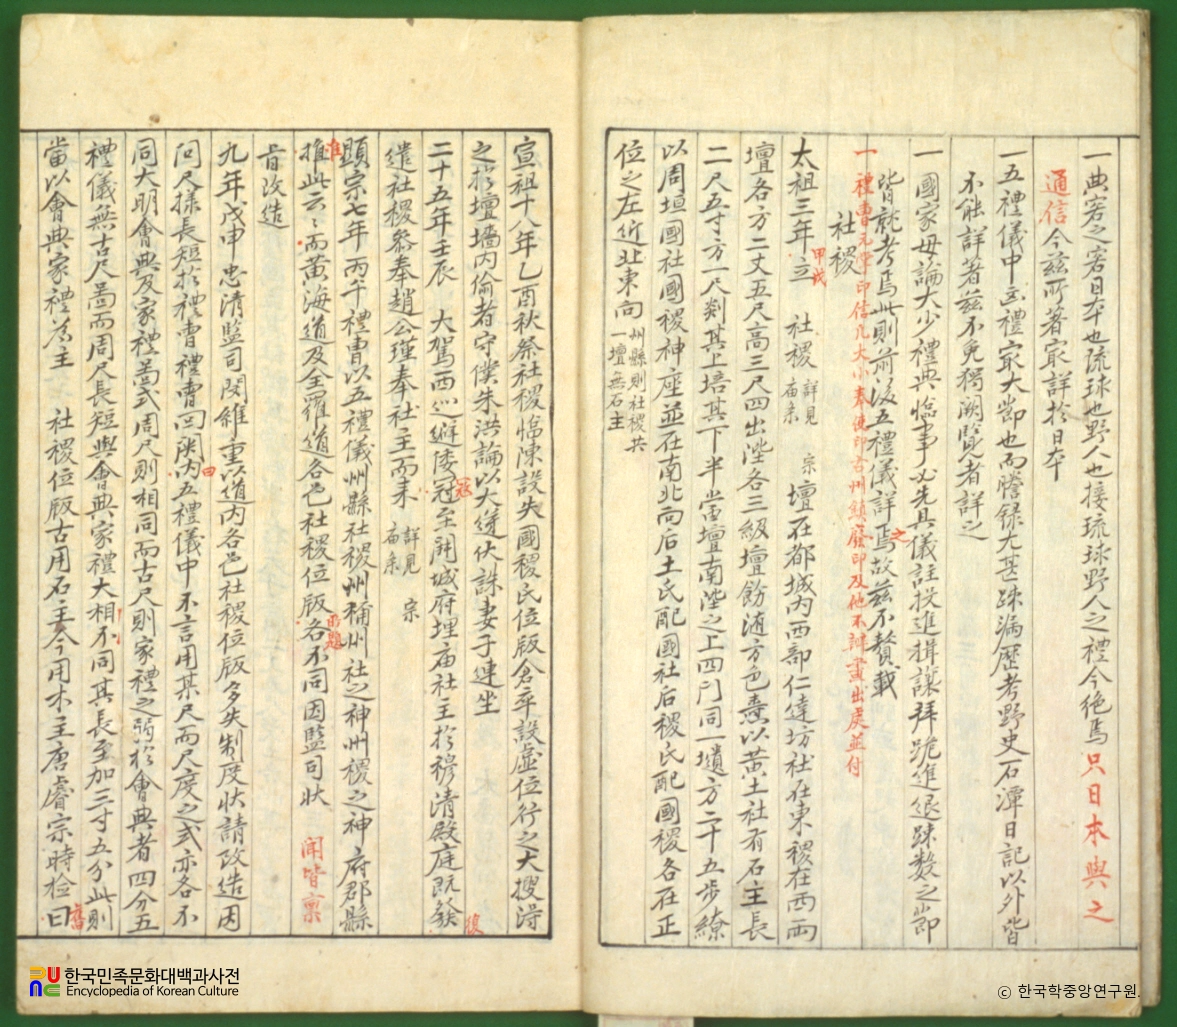 一典客之客日本也琉球也野人也接琉球野人之禮今絶焉只日本與之
通信今玆所著最詳於日本
一五禮儀中五禮最大節也而謄録尤甚踈漏歷考野史石潭日記以外皆
不能詳著玆不免獨闕覽者詳之
一國家毋論大少禮典臨事必先具儀註投進揖讓拜跪進退踈數之節
皆詳考焉此則前後五禮儀詳焉之故玆不贅載
一禮曹 印信凡大小奉使印古州鎮廢印及他不辨畫出處並付
社稷
太祖三年甲戌立 社稷詳見廟系 宗 壇在都城內西部仁達坊社在東稷在西兩
壇各方二丈五尺高三尺四出陛各三級壇飾隨方色燾以黃土社有石主長
二尺五寸方一尺剡其上培其下半當壇南陛之上四門同一壝方二十五步繚
以周垣國社國稷神座並在南北向后土氏配國社后稷氏配國稷各在正
位之左近北東向州縣則社稷共一壇無石主
宣祖十八年乙酉秋祭社稷臨陳設失國稷氏位版倉卒設虛位行之大搜得
之於壇墻內偷者守僕朱洪論以大逆伏誅妻子連坐
二十五年壬辰 大駕西巡避倭寇至開城府埋廟社主於穆清殿庭既發復
遣社稷參奉趙公瑾奉社主而來詳見廟系 宗
顯宗七年丙午禮曹以五禮儀州縣社稷州稱州社之神州稷之神府郡縣
推此云云而黃海道及全羅道各邑社稷位版各不同因監司狀 聞皆稟
旨改造
九年戊申忠清監司閔維重以道內各邑社稷位版多失制度狀請改造因
問尺揉長短於禮曹禮曹回關內曰五禮儀中不言用某尺而尺度之式亦各不
同大明會典及家禮啚式周尺則相同而古尺則家禮之弱於會典者四分五
禮儀無古尺啚而周尺長短與會典家禮大相不同其長至加三寸五分此則
當以會典家禮爲主 社稷位版古用石主今用木主唐睿宗時檢舊曰
한국민족문화대백과사전
Encyclopedia of Korean Culture
© 한국학중앙연구원.